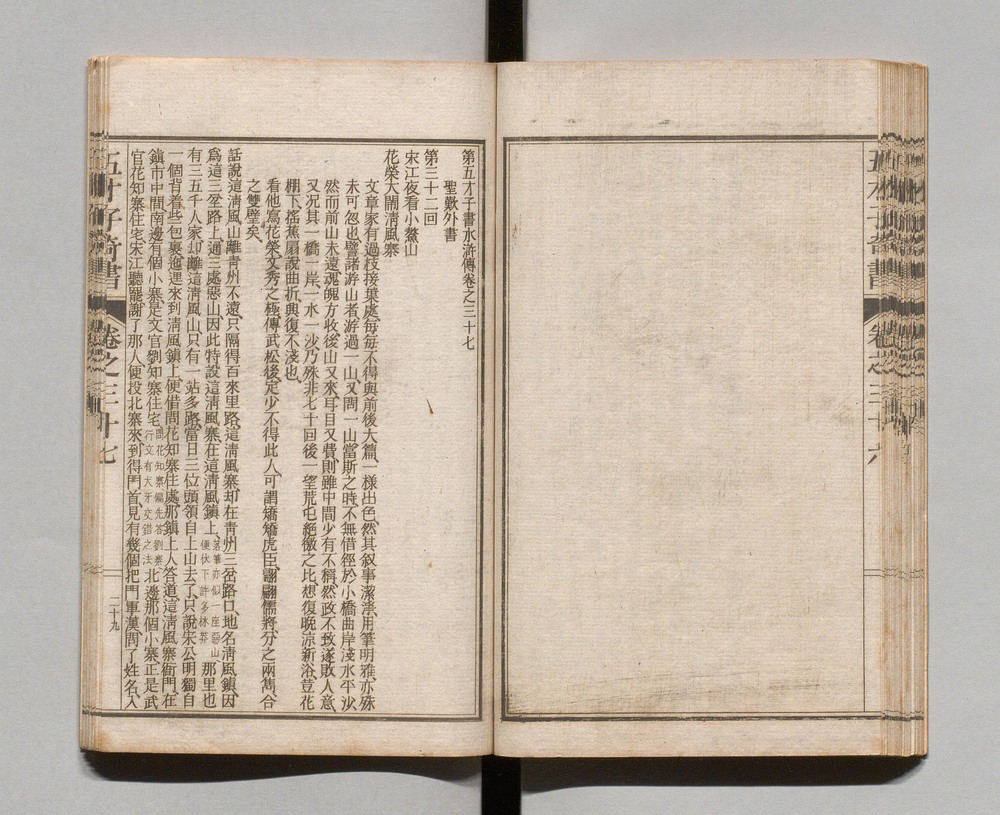 第五才子書水滸傳卷之三十七
聖歎外書
第三十二回
宋江夜看小鰲山
花榮大鬧清風寨
文章家有過枝接葉處每每不得與前後大篇一樣出色然其叙事潔淨用筆明雅亦殊
未可忽也譬諸游山者游過一山又問一山當斯之時不無借徑於小橋曲岸淺水平沙
然而前山未遠魂魄方收後山又來耳目又費則雖中間少有不稱然政不致遂敗人意
又況其一橋一岸一水一沙乃殊非七十回後一望荒屯絕徼之比想復晚涼新浴荳花
棚下搖蕉扇說曲折興復不淺也
看他寫花榮文秀之極傳武松後定少不得此人可謂矯矯虎臣翩翩儒將分之兩雋合
之雙璧矣
話說這清風山離青州不遠只隔得百來里路這清風寨却在青州三岔路口地名清風鎮因
爲這三岔路上通三處惡山因此特設這清風寨在這清風鎮上落筆亦似一座惡山便伏下許多林莽那里也
有三五千人家却離這清風山只有一站多路當日三位頭領自上山去了只說宋公明獨自
一個背着些包裹迤逕來到清風鎮上便借問花知寨住處那鎮上人答道這清風寨衙門在
鎮市中間南邊有個小寨是文官劉知寨住宅問花知寨偏先答劉寨行文有犬牙交錯之法北邊那個小寨正是武
官花知寨住宅宋江聽罷謝了那人便投北寨來到得門首見有幾個把門軍漢問了姓名入
五才子奇書
卷之三十七
二十九
五才子奇書
卷之三十六